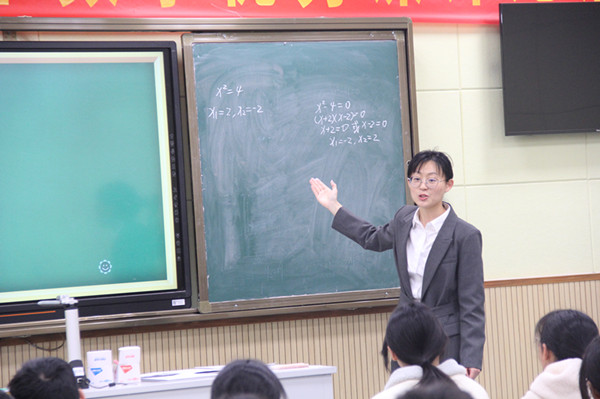 x²=4
x₁=2, x₂=-2
x²-4=0
(x+2)(x-2)=0
x+2=0 或 x-2=0
x₁=-2, x₂=2